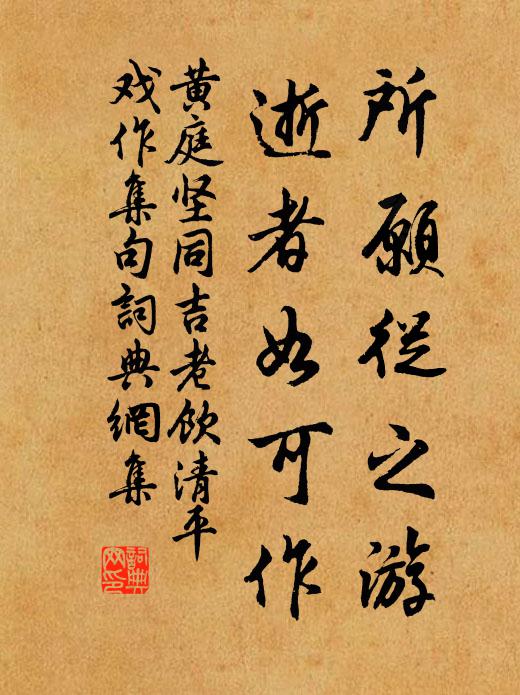 所願從之游
逝者如可作
黄庭坚同吉老飲清平
戏作集句詞典網集
詞典網印